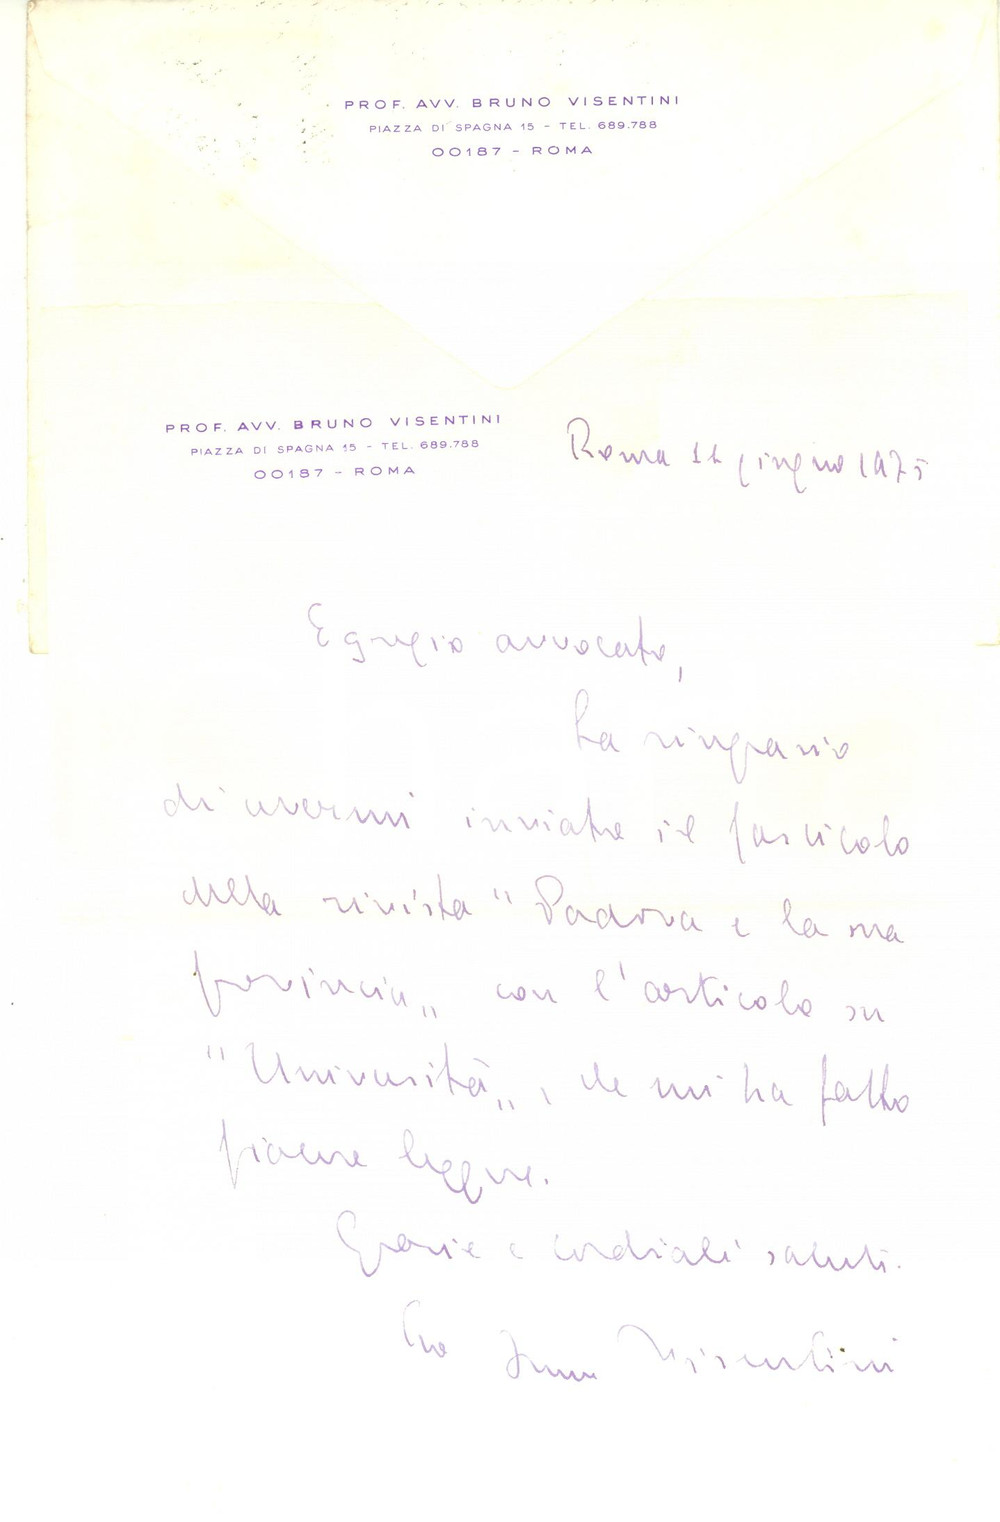 PROF. AVV. BRUNO VISENTINI
PIAZZA DI SPAGNA 15 - TEL. 689.788
00187 - ROMA
PROF. AVV. BRUNO VISENTINI
PIAZZA DI SPAGNA 15 - TEL. 689.788
00187 - ROMA
Roma giugno 1975
Egregio avvocato,
La ringrazio
di avermi inviato il fascicolo
della rivista "Padova e la sua
provincia„ con l'articolo su
"Università„, che mi ha fatto
piacere leggere.
Grazie e cordiali saluti.
Suo Bruno Visentini